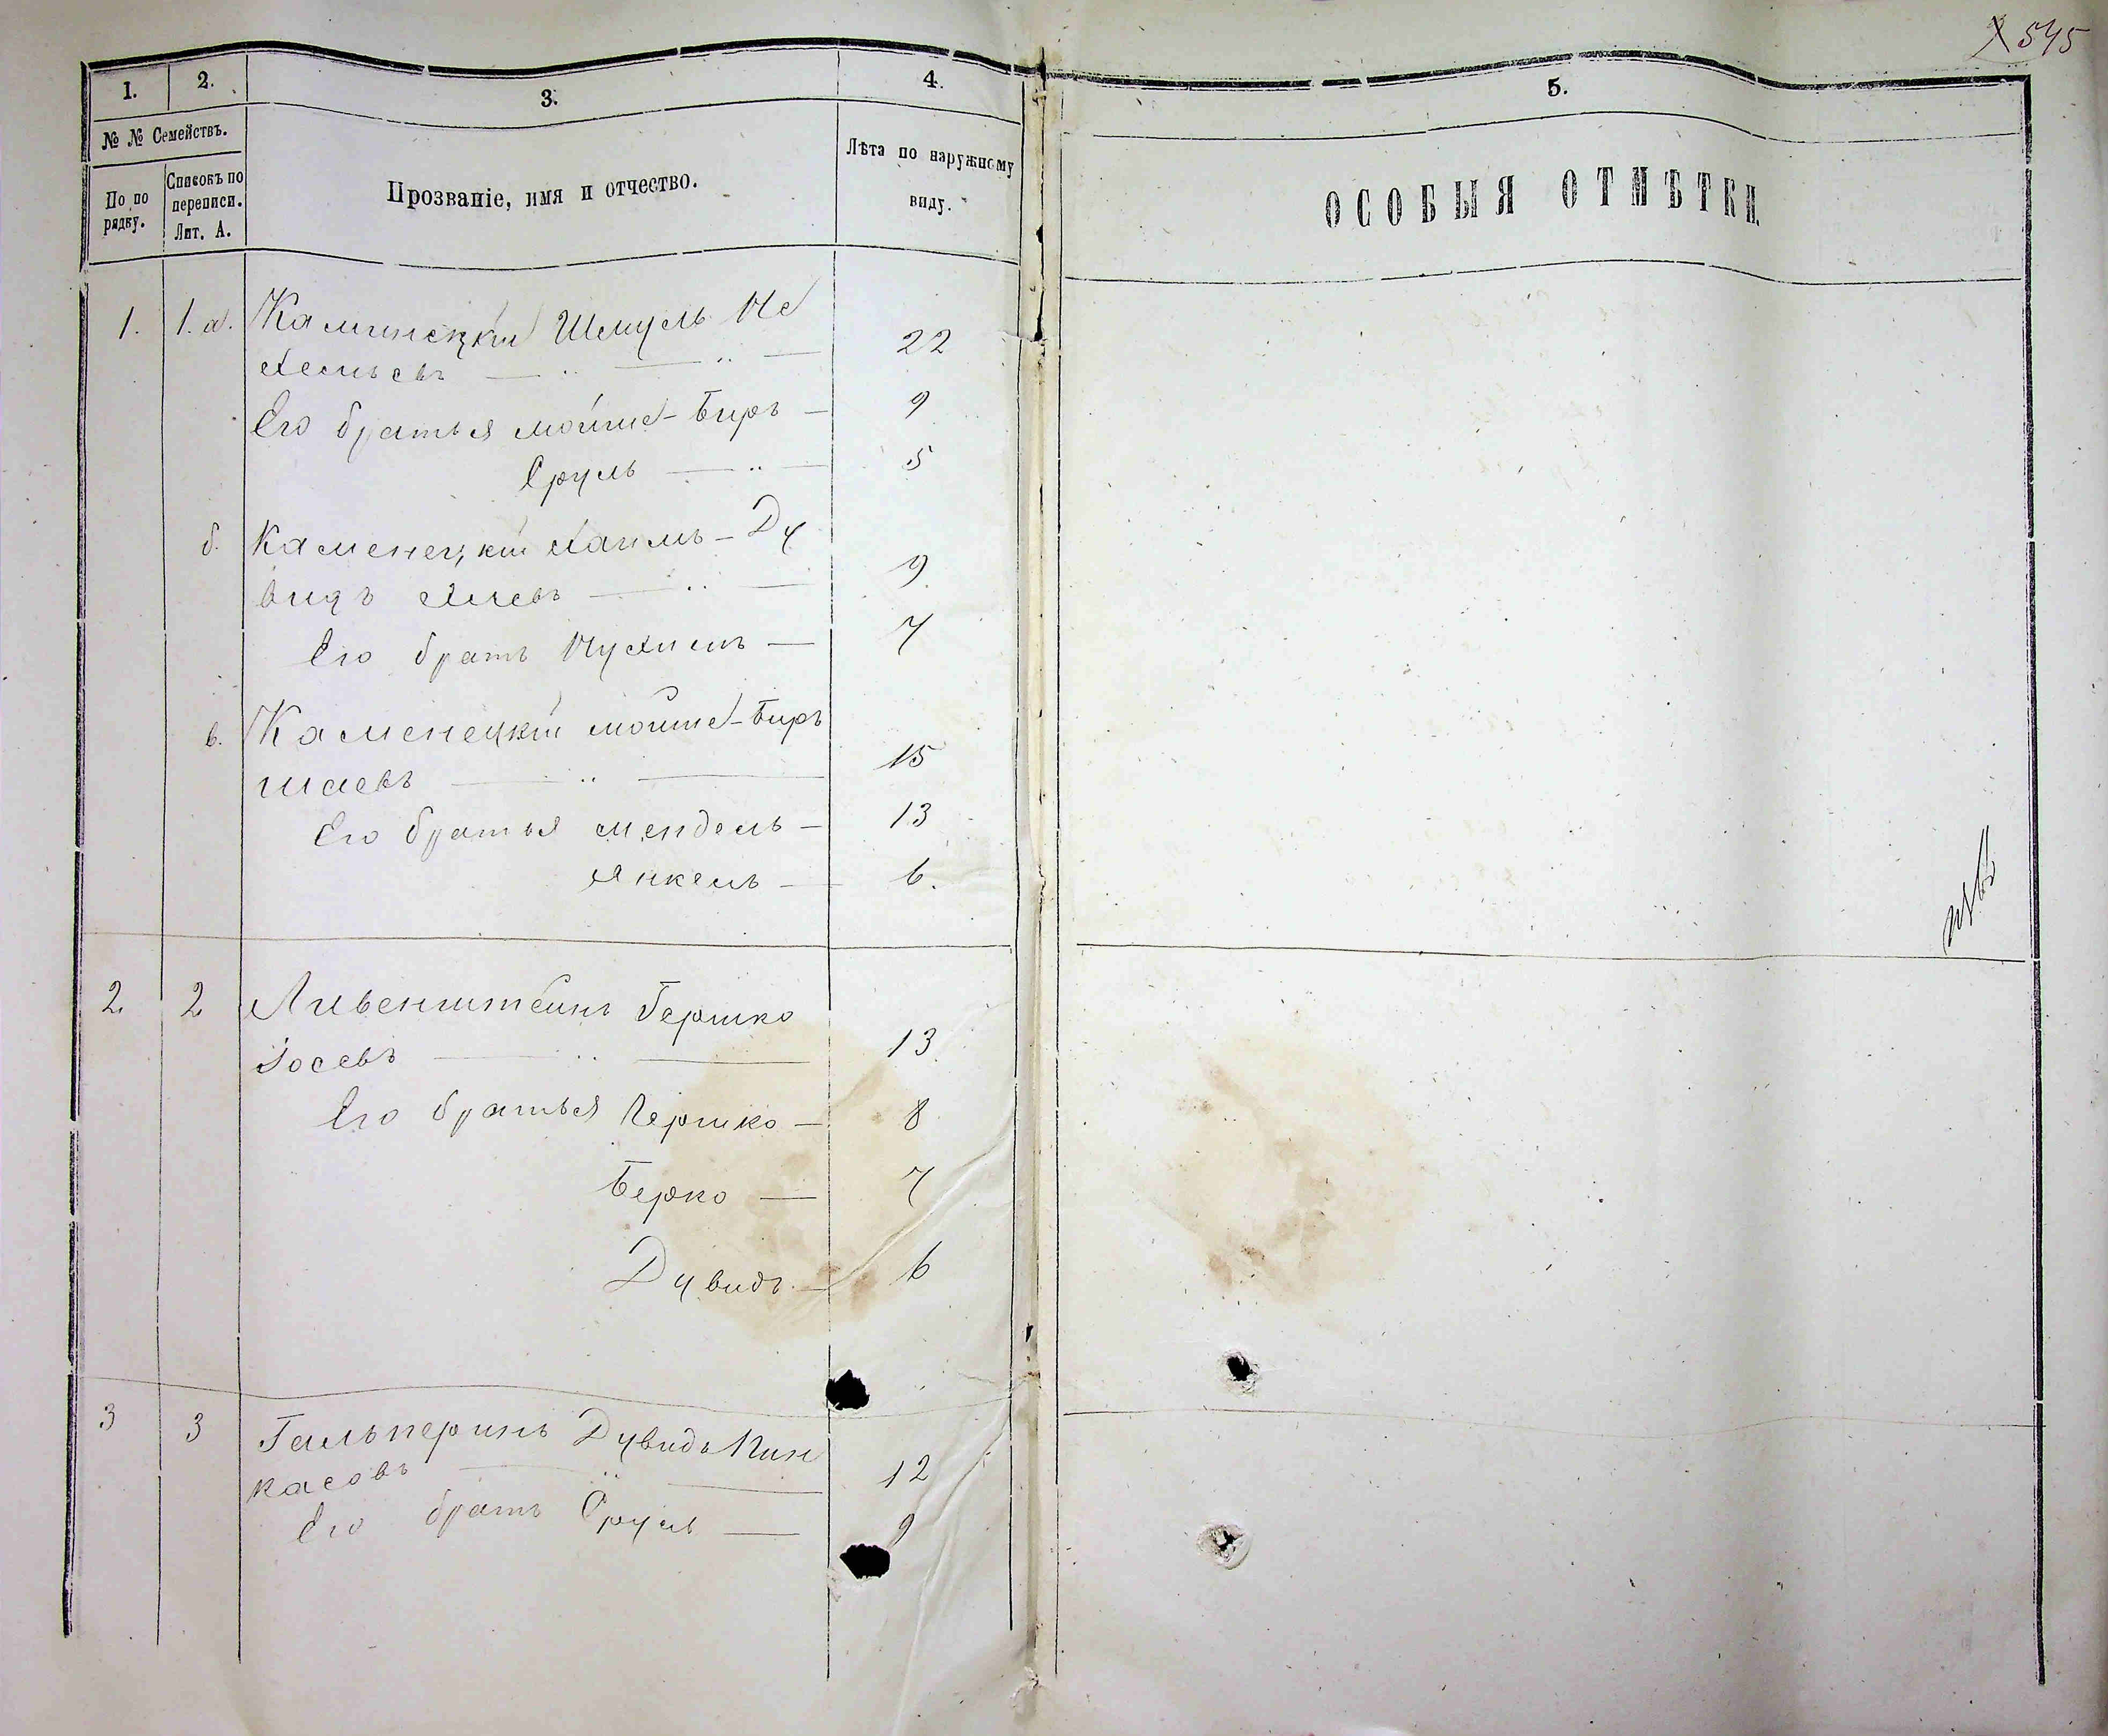 545
1.
2.
3.
4.
5.
№ № Семействъ.
По по
рядку.
Списокъ по
переписи.
Лит. А.
Прозваніе, имя и отчество.
Лѣта по наружному
виду.
ОСОБЫЯ ОТМѢТКИ.
1. 1. а. Каминецкій Шмуль Ме
хелевъ — " — 22
Его братья Мойше-Биръ — 9
Сруль — " — 5
б. Каменецкій Хаимъ-Ду
видъ — " — 9
Его братъ — 7
в. Каменецкій Мойше-Биръ
шаевъ — " — 15
Его братья Мендель — 13
Янкель — 6.
2 2 Ливенштейнъ Гершко
Іосевъ — " — 13
Его братья — 8
Берко — 7
Дувидъ — 6
3 3 Гальперинъ Дувидъ Пин
касовъ — " — 12
Его братъ Сруль — 9